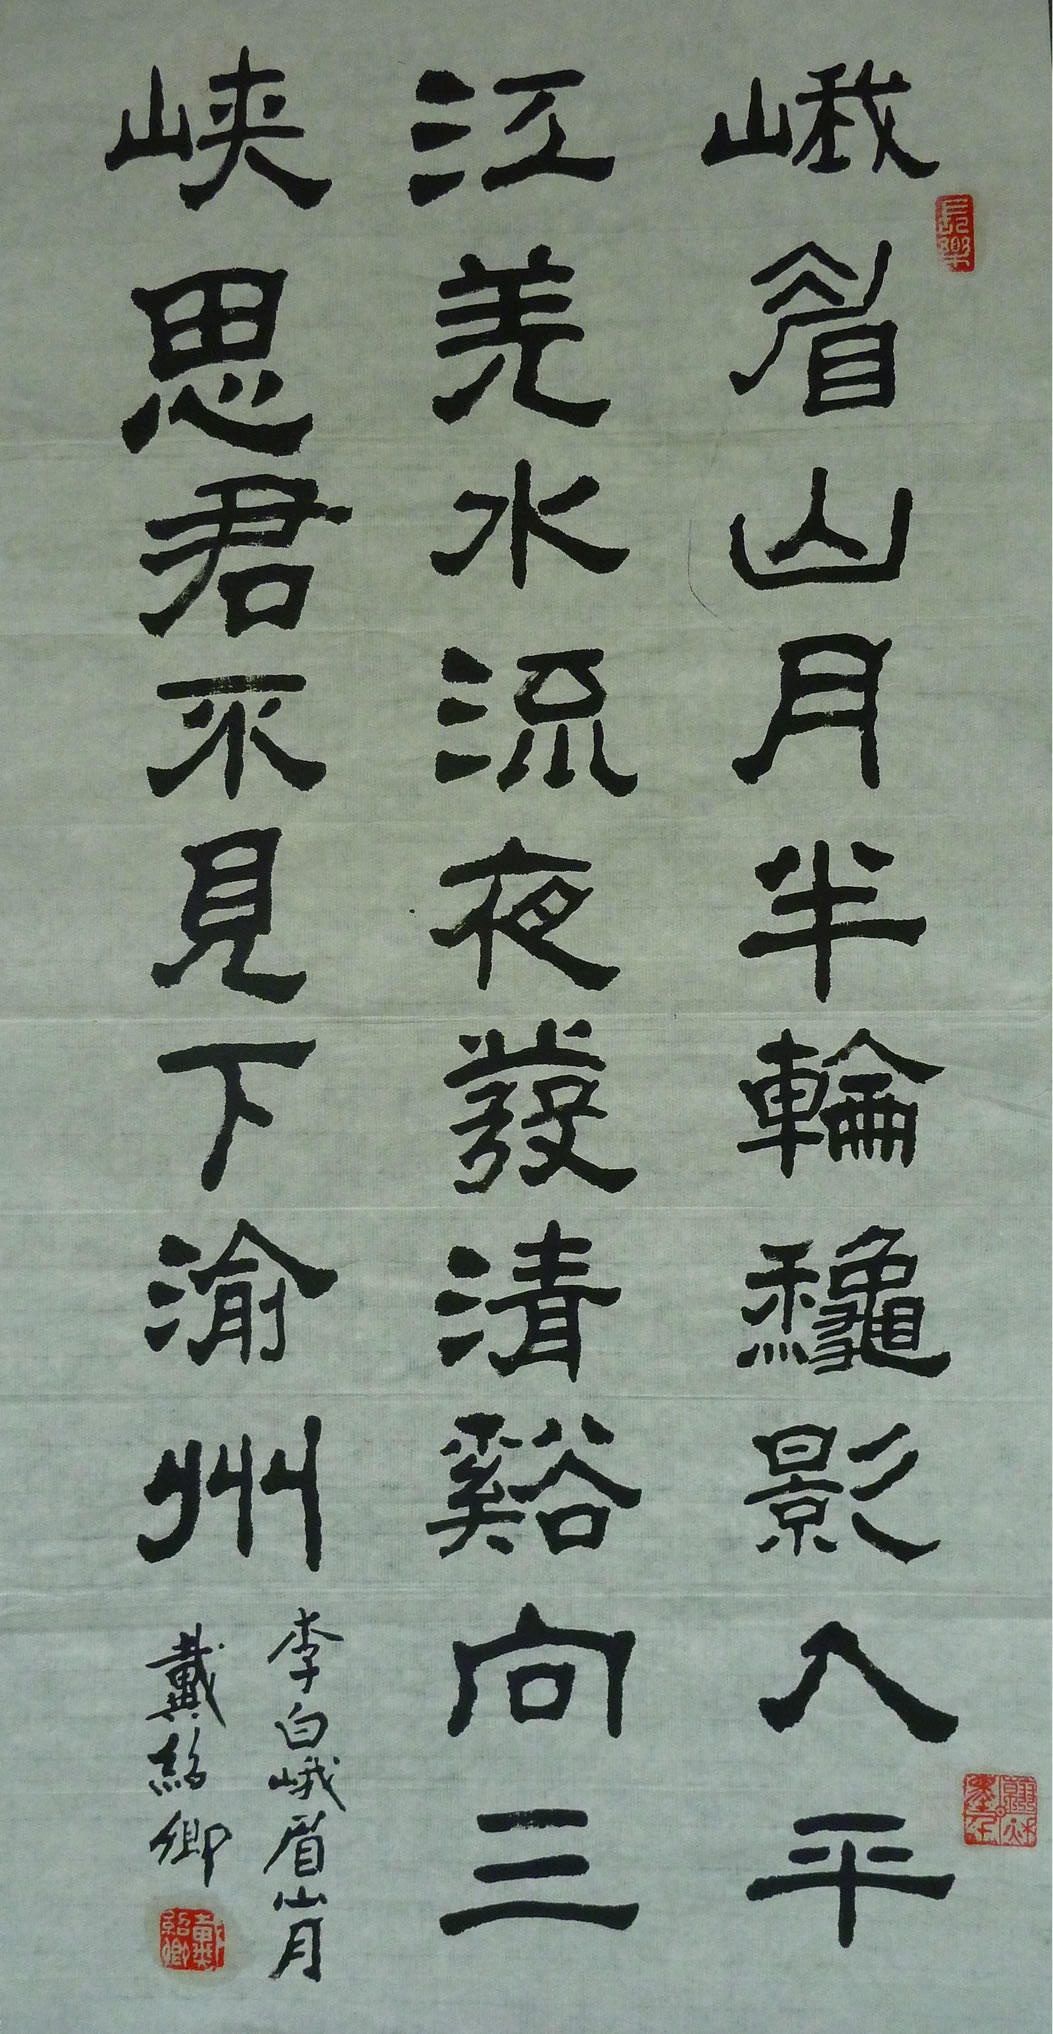 峨眉山月半輪龝影入平
江羌水流夜發清谿向三
峡思君不見下渝州
李白峨眉山月
戴紹卿
長樂
戴紹卿